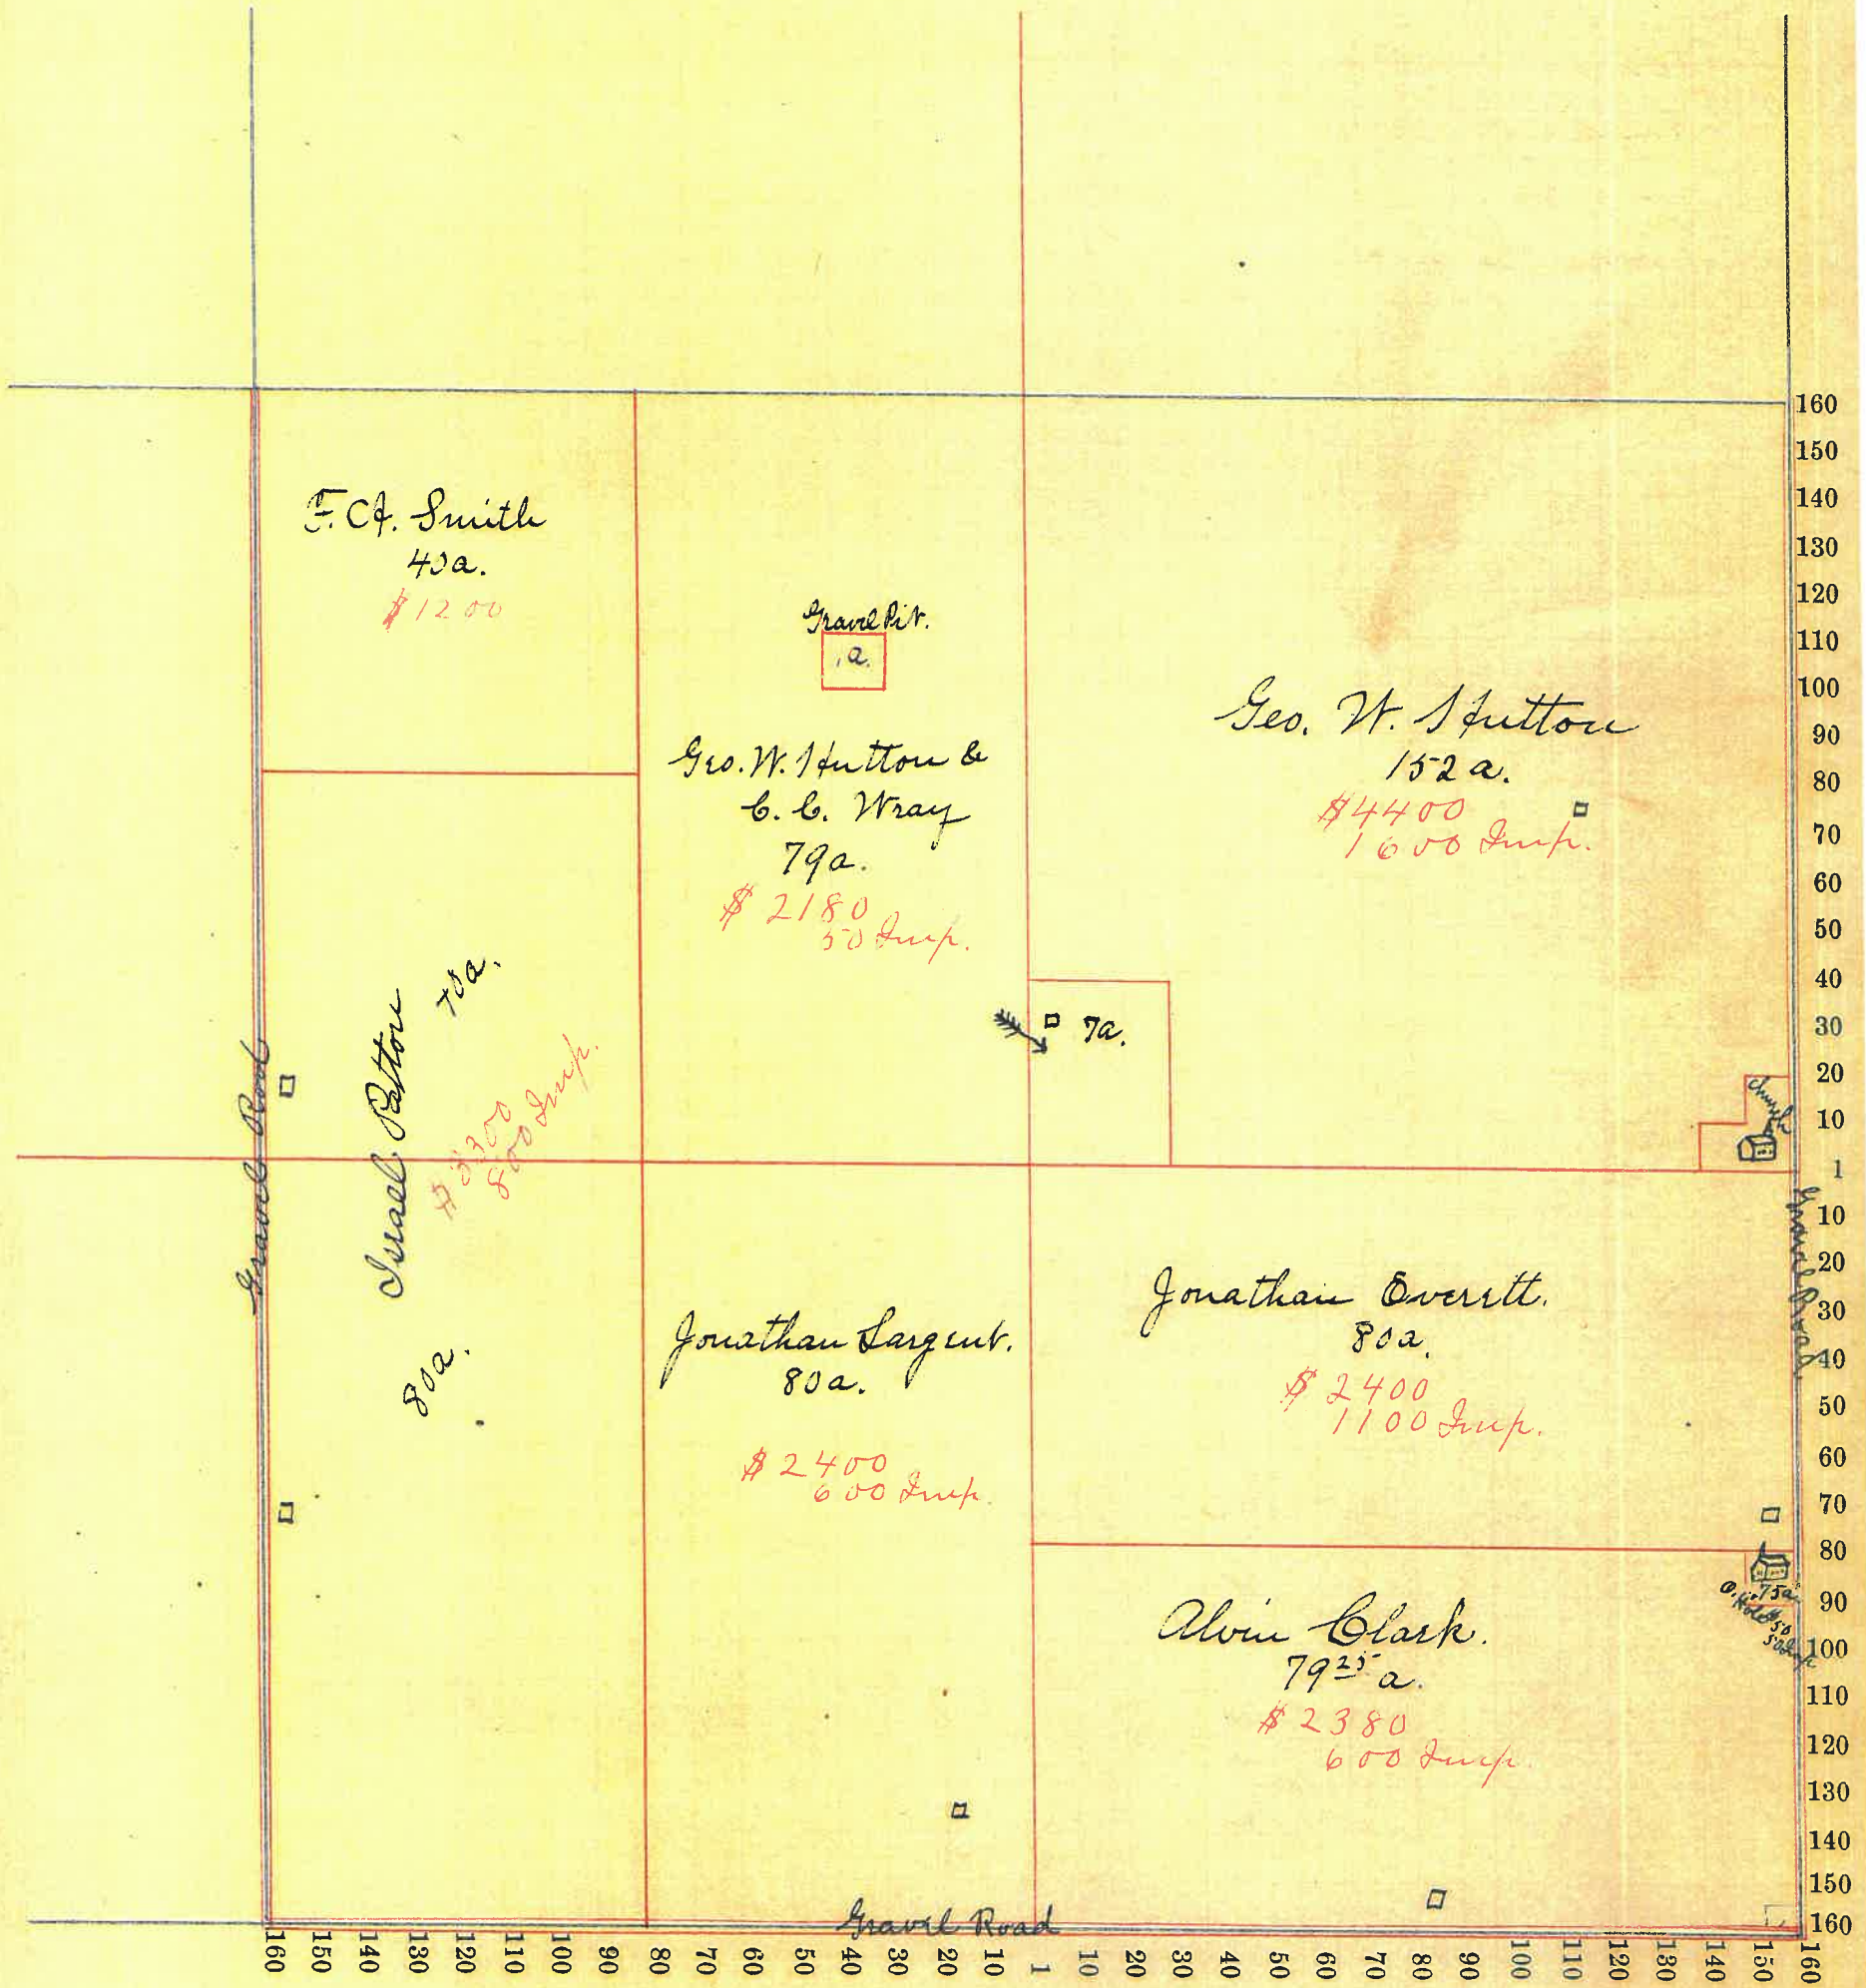 F. A. Smith
40a.
$1200
Gravel Pit.
1a.
Geo. W. Hutton &
C. C. Wray
79a.
$ 2180
50 Imp.
Geo. W. Hutton
152 a.
$4400
1600 Imp.
7a.
Church
Gravel Road
Israel Patton
70a.
$3300
800 Imp.
80a.
Jonathan Sargent.
80a.
$ 2400
600 Imp.
Jonathan Everett.
80a.
$ 2400
1100 Imp.
Gravel Road
.75a
$50
50 Imp
Alvin Clark.
79 25 a.
$ 2380
600 Imp.
Gravel Road
160
150
140
130
120
110
100
90
80
70
60
50
40
30
20
10
1
10
20
30
40
50
60
70
80
90
100
110
120
130
140
150
160
160 150 140 130 120 110 100 90 80 70 60 50 40 30 20 10 1 10 20 30 40 50 60 70 80 90 100 110 120 130 140 150 160